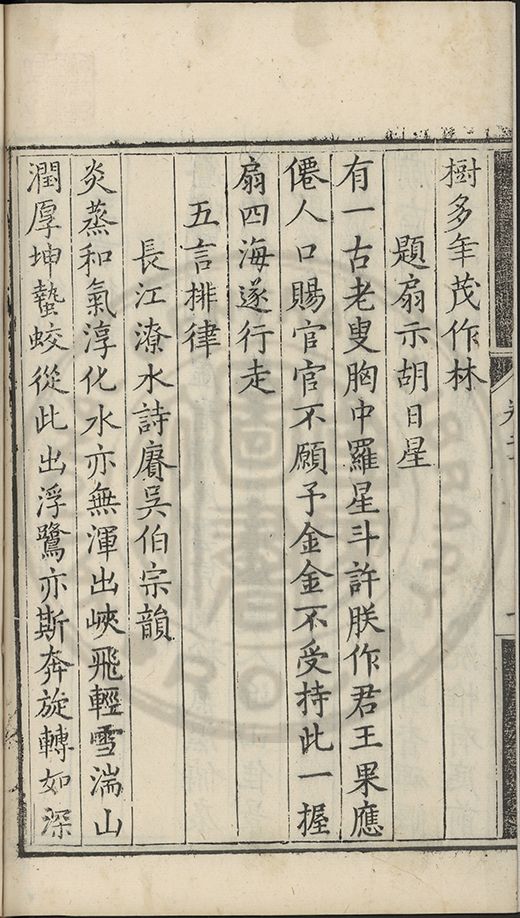 樹多年茂作林
題扇示胡日星
有一古老叟胸中羅星斗許朕作君王果應
僊人口賜官官不願予金金不受持此一握
扇四海遂行走
五言排律
長江潦水詩賡吳伯宗韻
炎蒸和氣淳化水亦無渾出峽飛輕雪湍山
潤厚坤蟄蛟從此出浮鷺亦斯奔旋轉如深